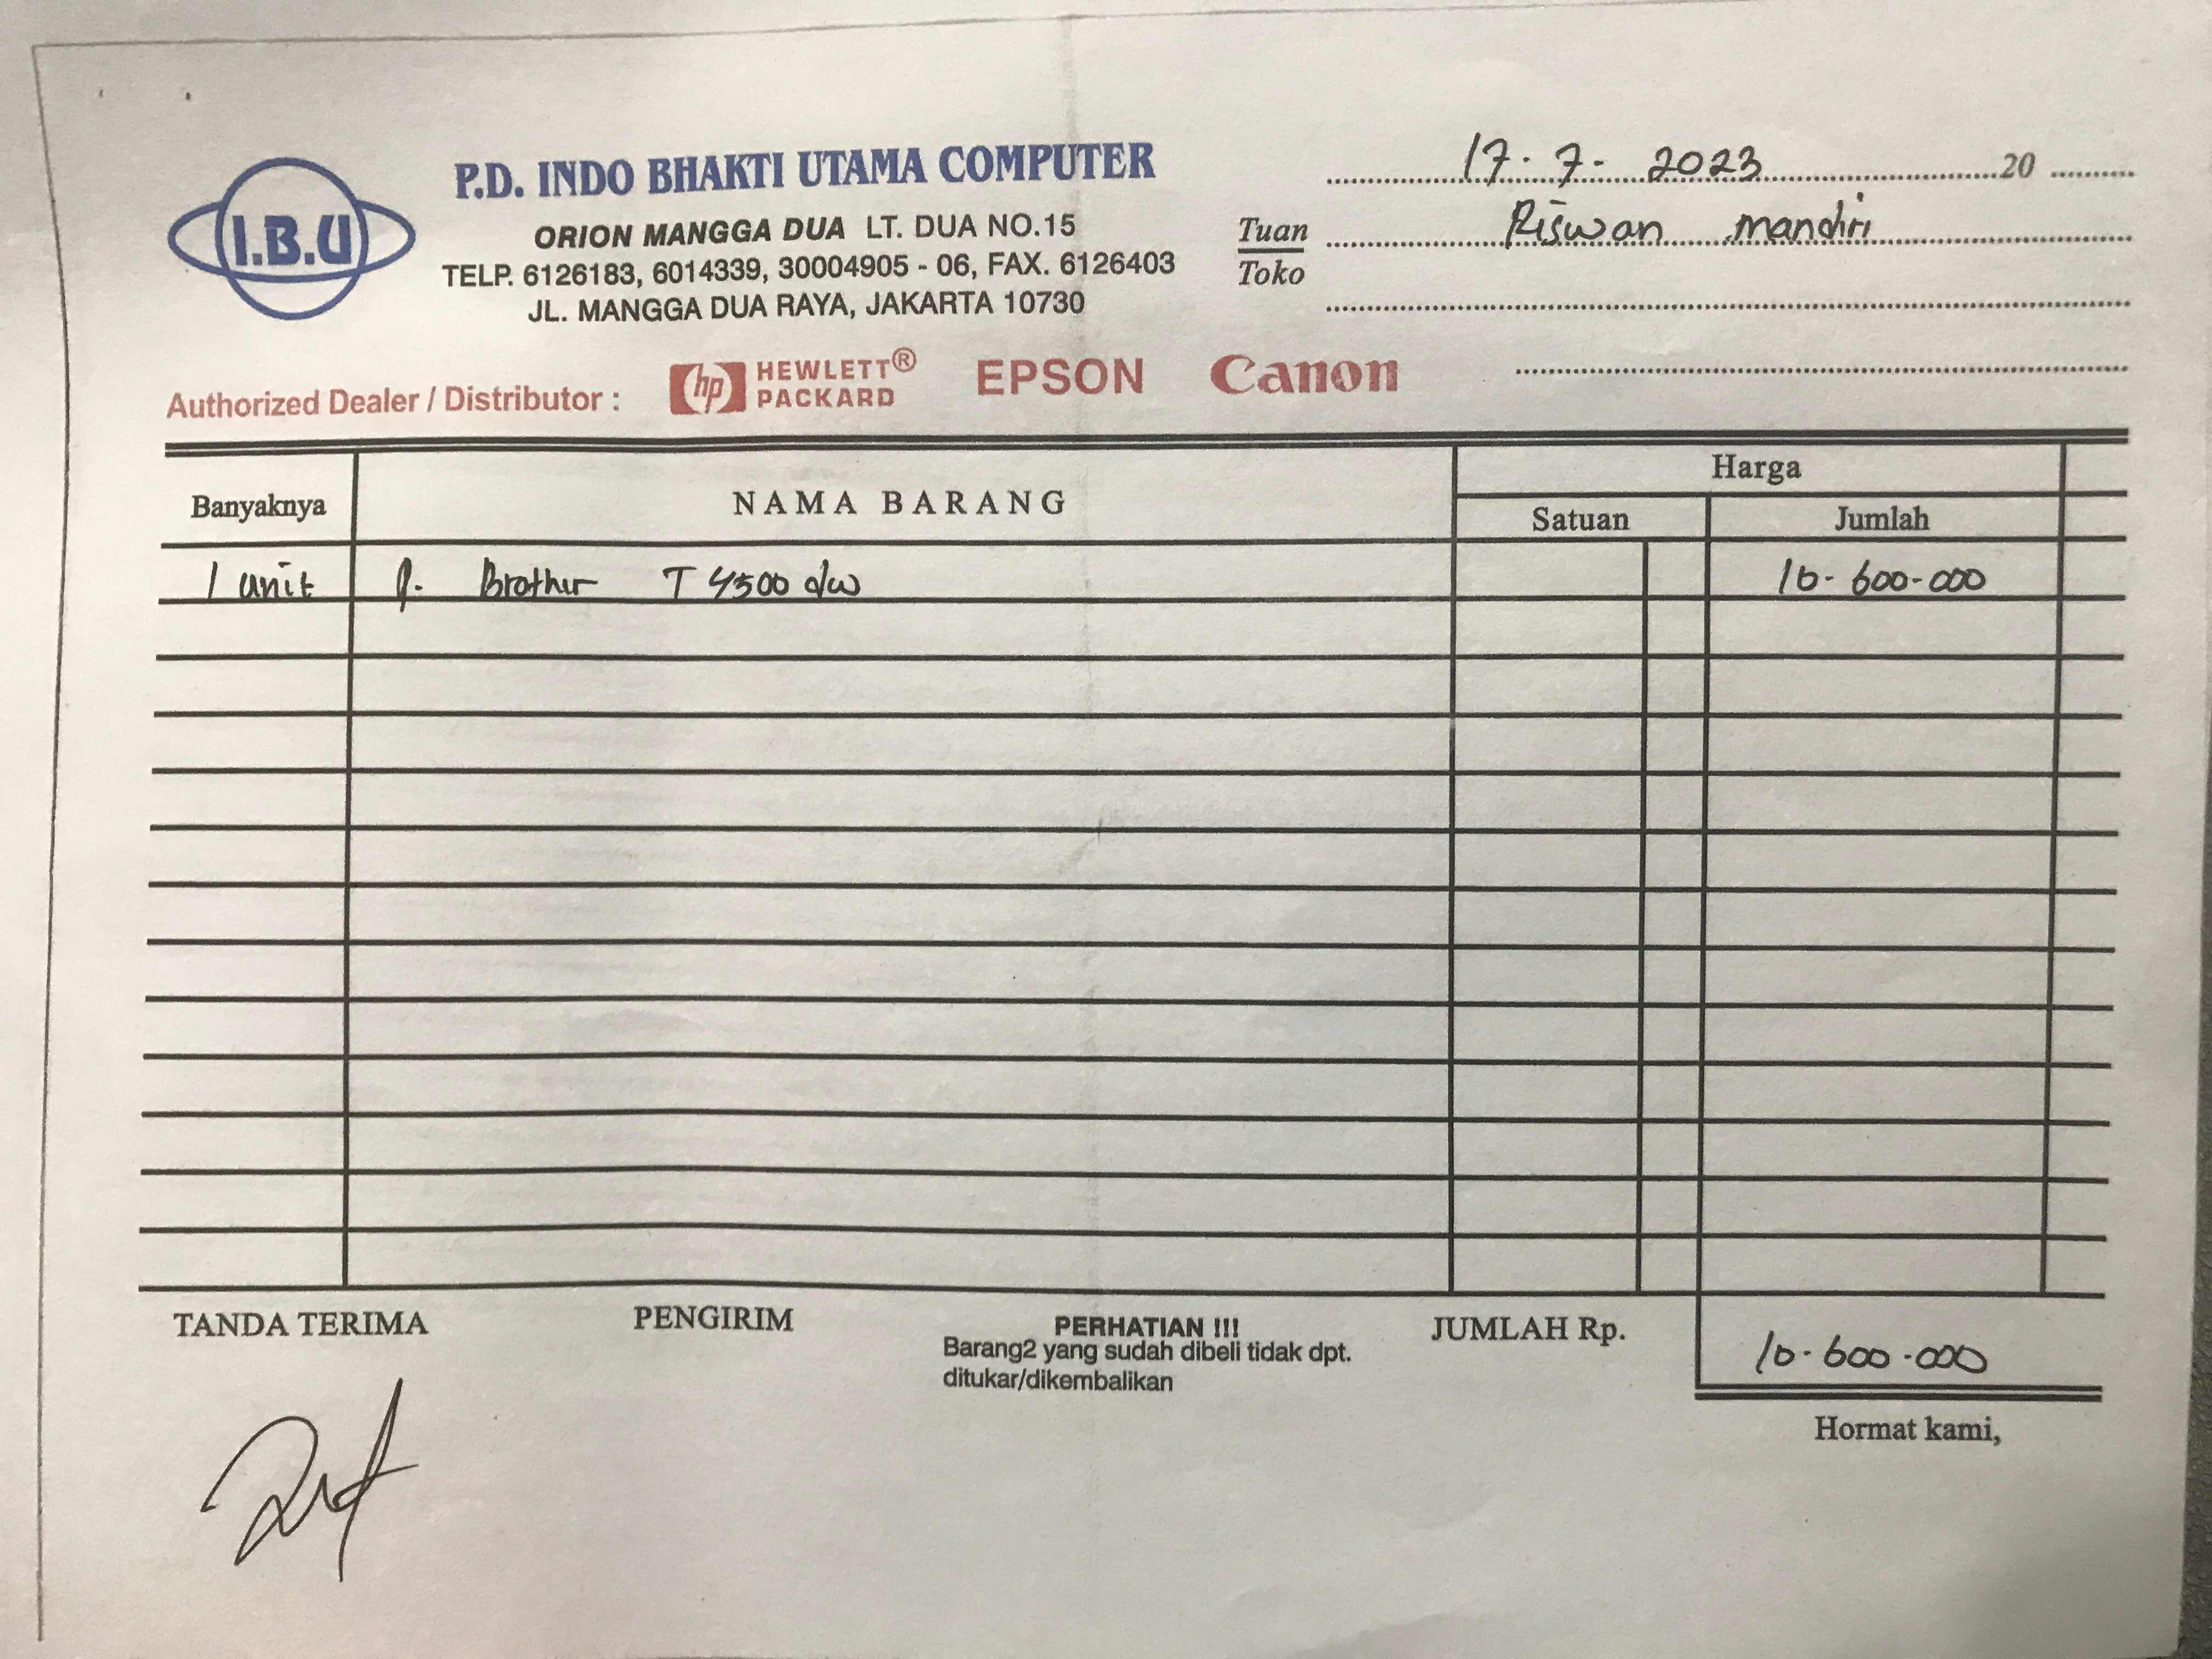 I.B.U
P.D. INDO BHAKTI UTAMA COMPUTER
ORION MANGGA DUA LT. DUA NO.15
TELP. 6126183, 6014339, 30004905 - 06, FAX. 6126403
JL. MANGGA DUA RAYA, JAKARTA 10730
17-7-2023 20
Tuan Riswan mandiri
Toko
Authorized Dealer / Distributor : hp HEWLETT® PACKARD EPSON Canon
Banyaknya NAMA BARANG Harga
Satuan Jumlah
1 unit P. Brother T 4500 dw 10-600-000
TANDA TERIMA PENGIRIM PERHATIAN !!! JUMLAH Rp. 10-600-000
Barang2 yang sudah dibeli tidak dpt.
ditukar/dikembalikan
Hormat kami,